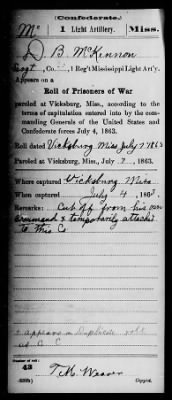 (Confederate.)
Mc 1 Light Artillery. Miss.
D. B. McKinnon
Sergt, Co. , 1 Reg't Mississippi Light Art'y.
Appears on a
Roll of Prisoners of War
paroled at Vicksburg, Miss., according to the
terms of capitulation entered into by the com-
manding Generals of the United States and
Confederate forces July 4, 1863.
Roll dated Vicksburg Miss July 7 1863
Paroled at Vicksburg, Miss., July 7, 1863.
Where captured Vicksburg Miss.
When captured July 4, 1863.
Remarks: Cut off from his own
command & temporarily attachd
to this Co
* appears on Duplicate roll
as
Number of roll:
43 T. M. Weaver
Copyist.